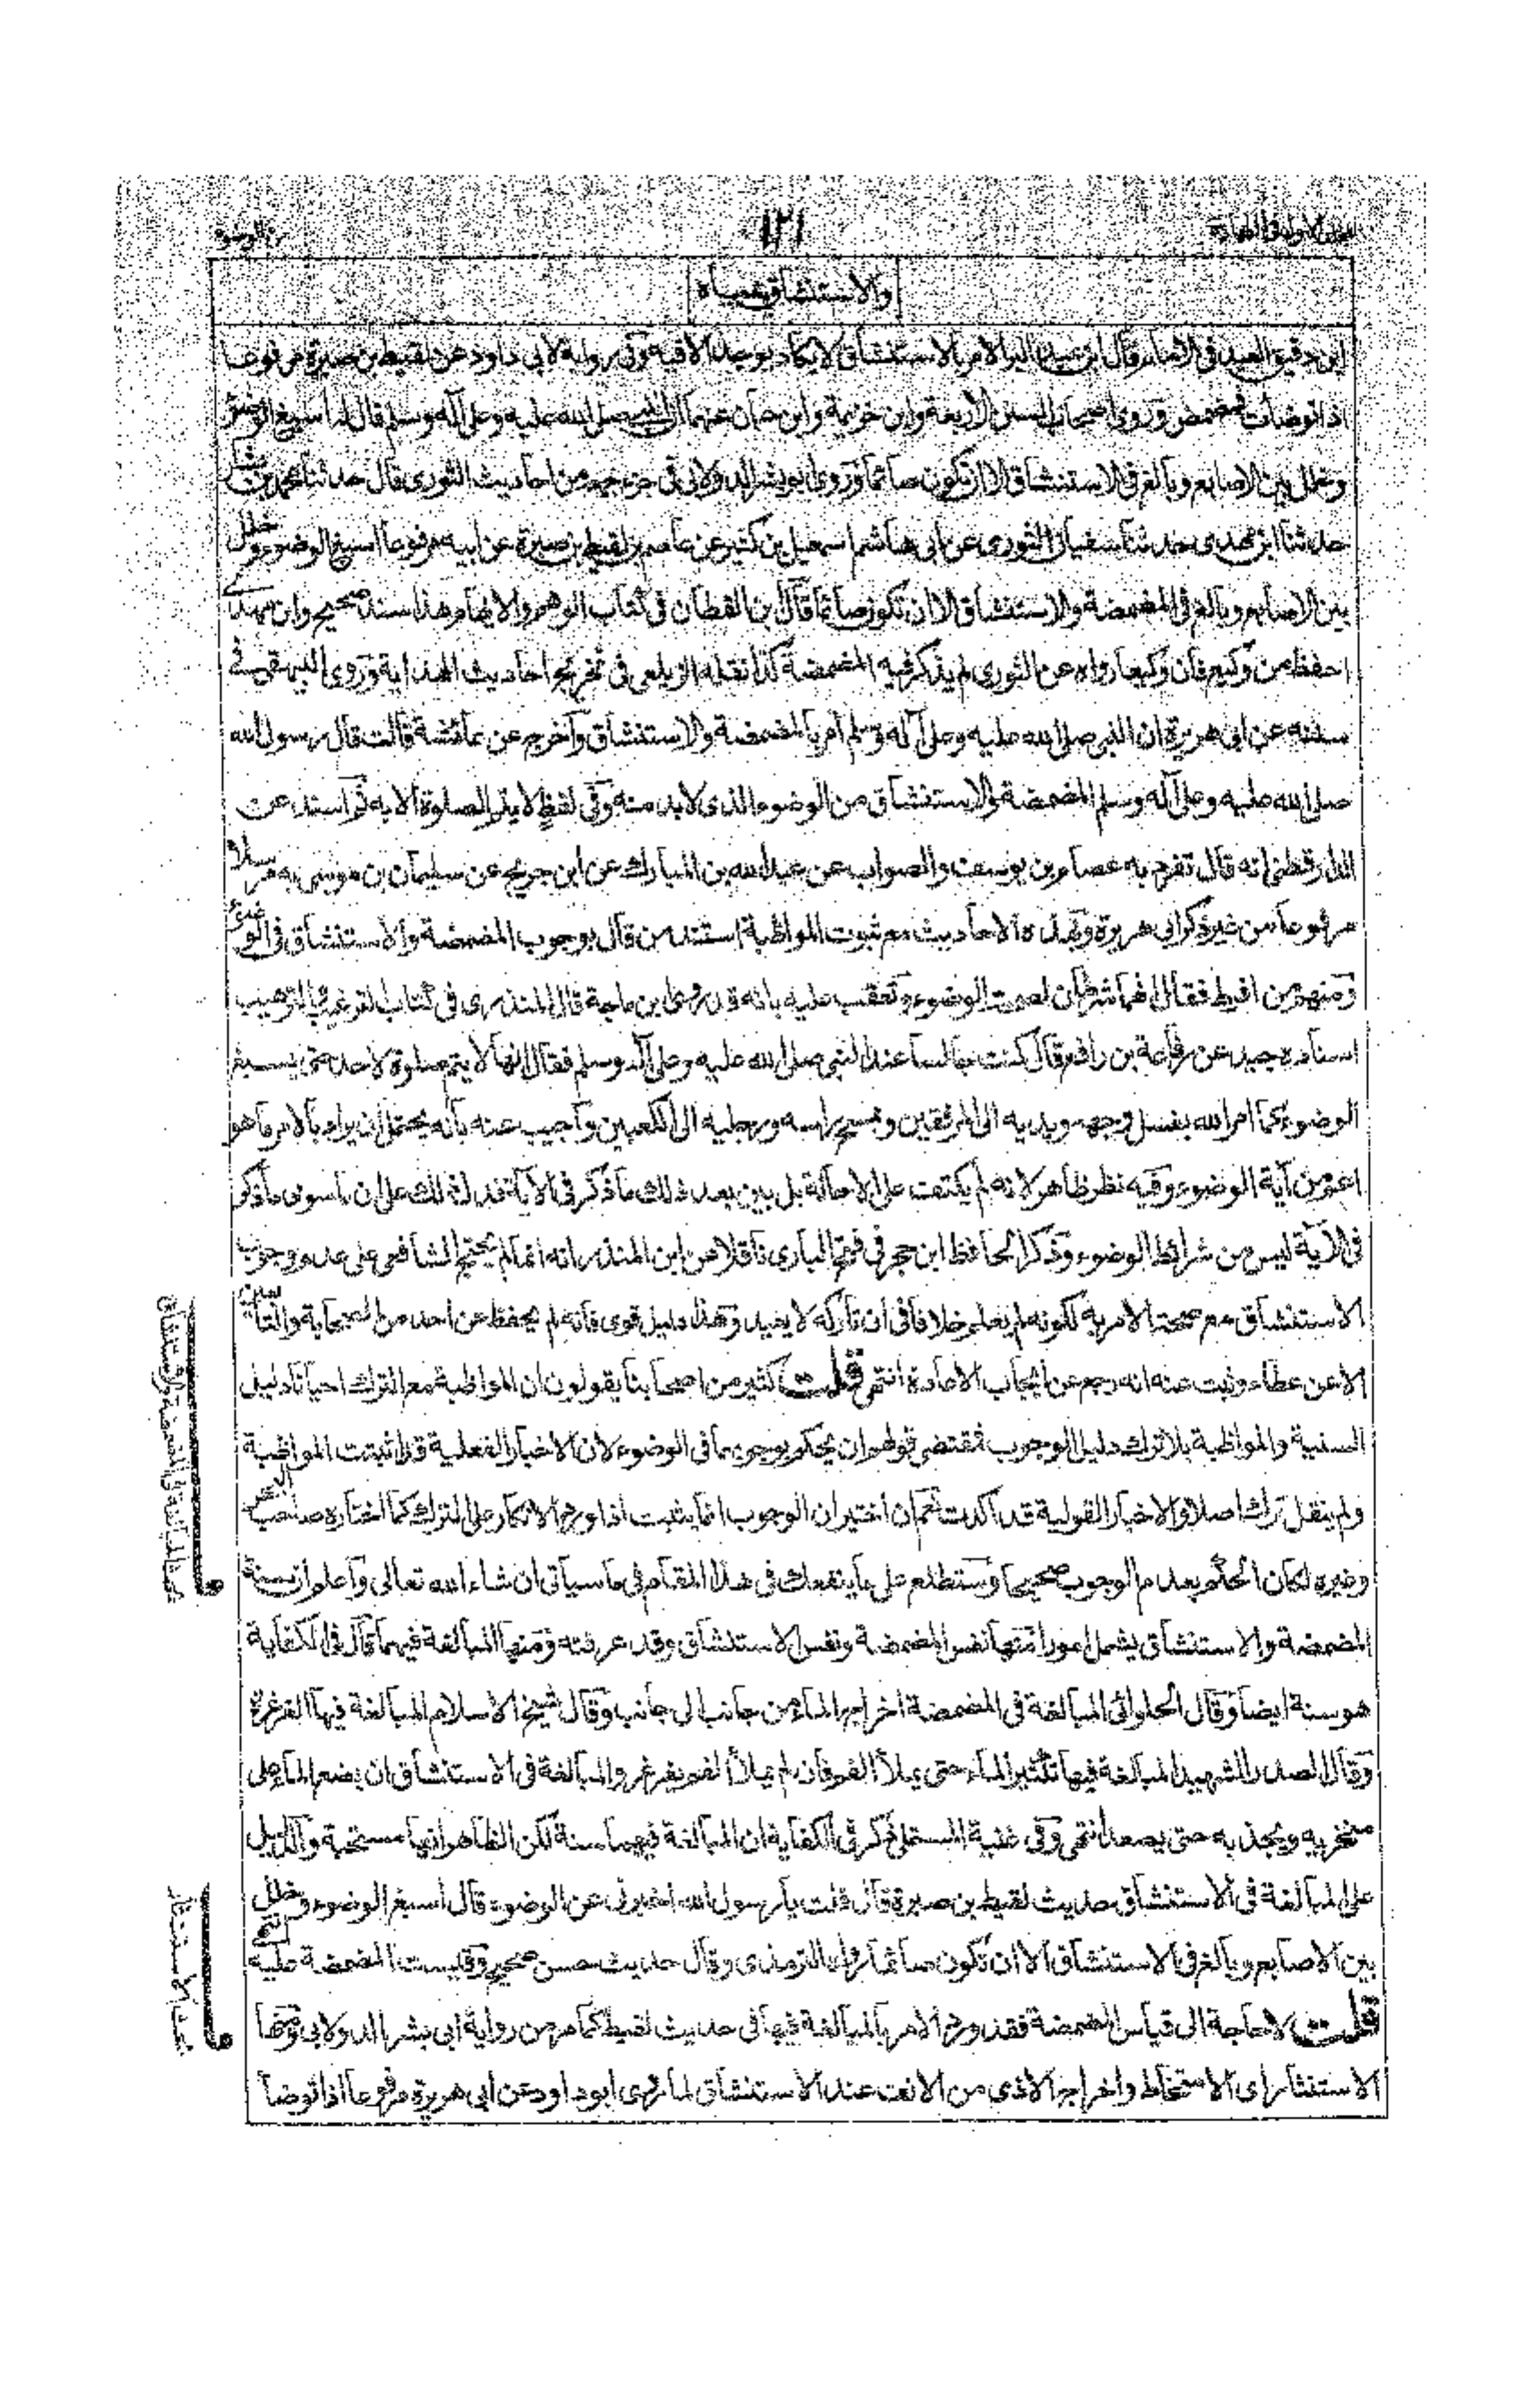 ١٢١
والاستنشاق بمياه
ابن دقيق العيد في الامام قال ابن عبد البر الامر بالاستنشاق لا يكاد يوجد الا فيه وفي رواية لابي داود عن لقيط بن صبرة مرفوعا
اذا توضأت فمضمض وروى اصحاب السنن الاربعة وابن خزيمة وابن حبان عنه ان النبي صلى الله عليه وعلى آله وسلم قال له اسبغ الوضوء
وخلل بين الاصابع وبالغ في الاستنشاق الا ان تكون صائما وروى ابو بشر الدولابي في جزء جمعه من احاديث الثوري قال حدثنا محمد بن
حدثنا ابن مهدى حدثنا سفيان الثوري عن ابى هاشم اسمعيل بن كثير عن عاصم بن لقيط بن صبرة عن ابيه مرفوعا اسبغ الوضوء وخلل
بين الاصابع وبالغ في المضمضة والاستنشاق الا ان تكون صائما قال بن القطان في كتاب الوهم والايهام هذا سند صحيح وابن مهدي
احفظ من وكيع فان وكيعا رواه عن الثوري لم يذكر فيه المضمضة كذا نقله الزيلعي في تخريج احاديث الهداية وروى البيهقي في
سننه عن ابى هريرة ان النبي صلى الله عليه وعلى آله وسلم امر بالمضمضة والاستنشاق واخرج عن عائشة قالت قال رسول الله
صلى الله عليه وعلى آله وسلم المضمضة والاستنشاق من الوضوء الذى لابد منه وفي لفظ لا يتم الصلوة الا به ثم اسند عن
الدارقطني انه قال تفرد به عصام بن يوسف والصواب عن عبد الله بن المبارك عن ابن جريج عن سليمان بن موسى به مرسلا
مرفوعا من غير ذكر ابي هريرة وبهذه الاحاديث مع ثبوت المواظبة استند من قال بوجوب المضمضة والاستنشاق في الوضوء
ومنهم من افرط فقال انهما شرطان لصحة الوضوء وتعقب عليه بانه قد روى ابن ماجة قال المنذرى في كتاب الترغيب والترهيب
اسناده جيد عن رفاعة بن رافع قال كنت جالسا عند النبي صلى الله عليه وعلى آله وسلم فقال انها لا يتم صلوة لاحد حتى يسبغ
الوضوء كما امر الله بغسل وجهه ويديه الى المرفقين ويمسح براسه ورجليه الى الكعبين واجيب عنه بانه يحتمل ان يراد بالامر ما هو
اعم من آية الوضوء وفيه نظر ظاهر لانه لم يكتف على الاحالة بل بين بعد ذلك ما ذكر في الآية فدل ذلك على ان ما سوى ما ذكر
في الآية ليس من شرائط الوضوء وذكر الحافظ ابن حجر في فتح البارى ناقلا عن ابن المنذر انه انما لم يحتج الشافعي على عدم وجوب
الاستنشاق مع صحة الامر به لكونه لم يعلم خلافا في ان تاركه لا يعيد وهذا دليل قوي فانه لم يحفظ عن احد من الصحابة والتابعين
الا عن عطاء وثبت عنه انه رجع عن ايجاب الاعادة انتهى قلت كثير من اصحابنا يقولون ان المواظبة مع الترك احيانا دليل
السنية والمواظبة بلا ترك دليل الوجوب فمقتضى قولهم ان يحكم بوجوبهما في الوضوء لان الاخبار الفعلية قد اثبتت المواظبة
ولم ينقل ترك اصلا والاخبار القولية قد اكدت نعم ان اختير ان الوجوب انما يثبت اذا ورد الانكار على الترك كما اختاره صاحب البحر
وغيره لكان الحكم بعدم الوجوب صحيحا وستطلع على ما ينفعك في هذا المقام في ما سياتى ان شاء الله تعالى واعلم ان سنة
المضمضة والاستنشاق يشمل امورا منها نفس المضمضة ونفس الاستنشاق وقد عرفته ومنها المبالغة فيهما قال في الكفاية
هو سنة ايضا وقال الحلوائى المبالغة في المضمضة اخراج الماء من جانب الى جانب وقال شيخ الاسلام المبالغة فيها الغرغرة
وقال الصدر الشهيد المبالغة فيها تكثير الماء حتى يملأ الفم فان لم يملأ الفم يغرغر والمبالغة في الاستنشاق ان يضع الماء على
منخريه ويجذبه حتى يصعد انتهى وفي غنية المستملي ذكر في الكفاية ان المبالغة فيهما سنة لكن الظاهر انها مستحبة والدليل
على المبالغة في الاستنشاق حديث لقيط بن صبرة قال قلت يا رسول الله اخبرنى عن الوضوء قال اسبغ الوضوء وخلل
بين الاصابع وبالغ في الاستنشاق الا ان تكون صائما رواه الترمذى وقال حديث حسن صحيح وقيست المضمضة عليه انتهى
قلت لا حاجة الى قياس المضمضة فقد ورد الامر بالمبالغة فيها في حديث لقيط كما مر من رواية ابى بشر الدولابى ومنها
الاستنثار اى الامتخاط واخراج الاذى من الانف عند الاستنشاق لما روى ابو داود عن ابى هريرة مرفوعا اذا توضأ
بحث المبالغة في المضمضة والاستنشاق
بحث الاستنثار